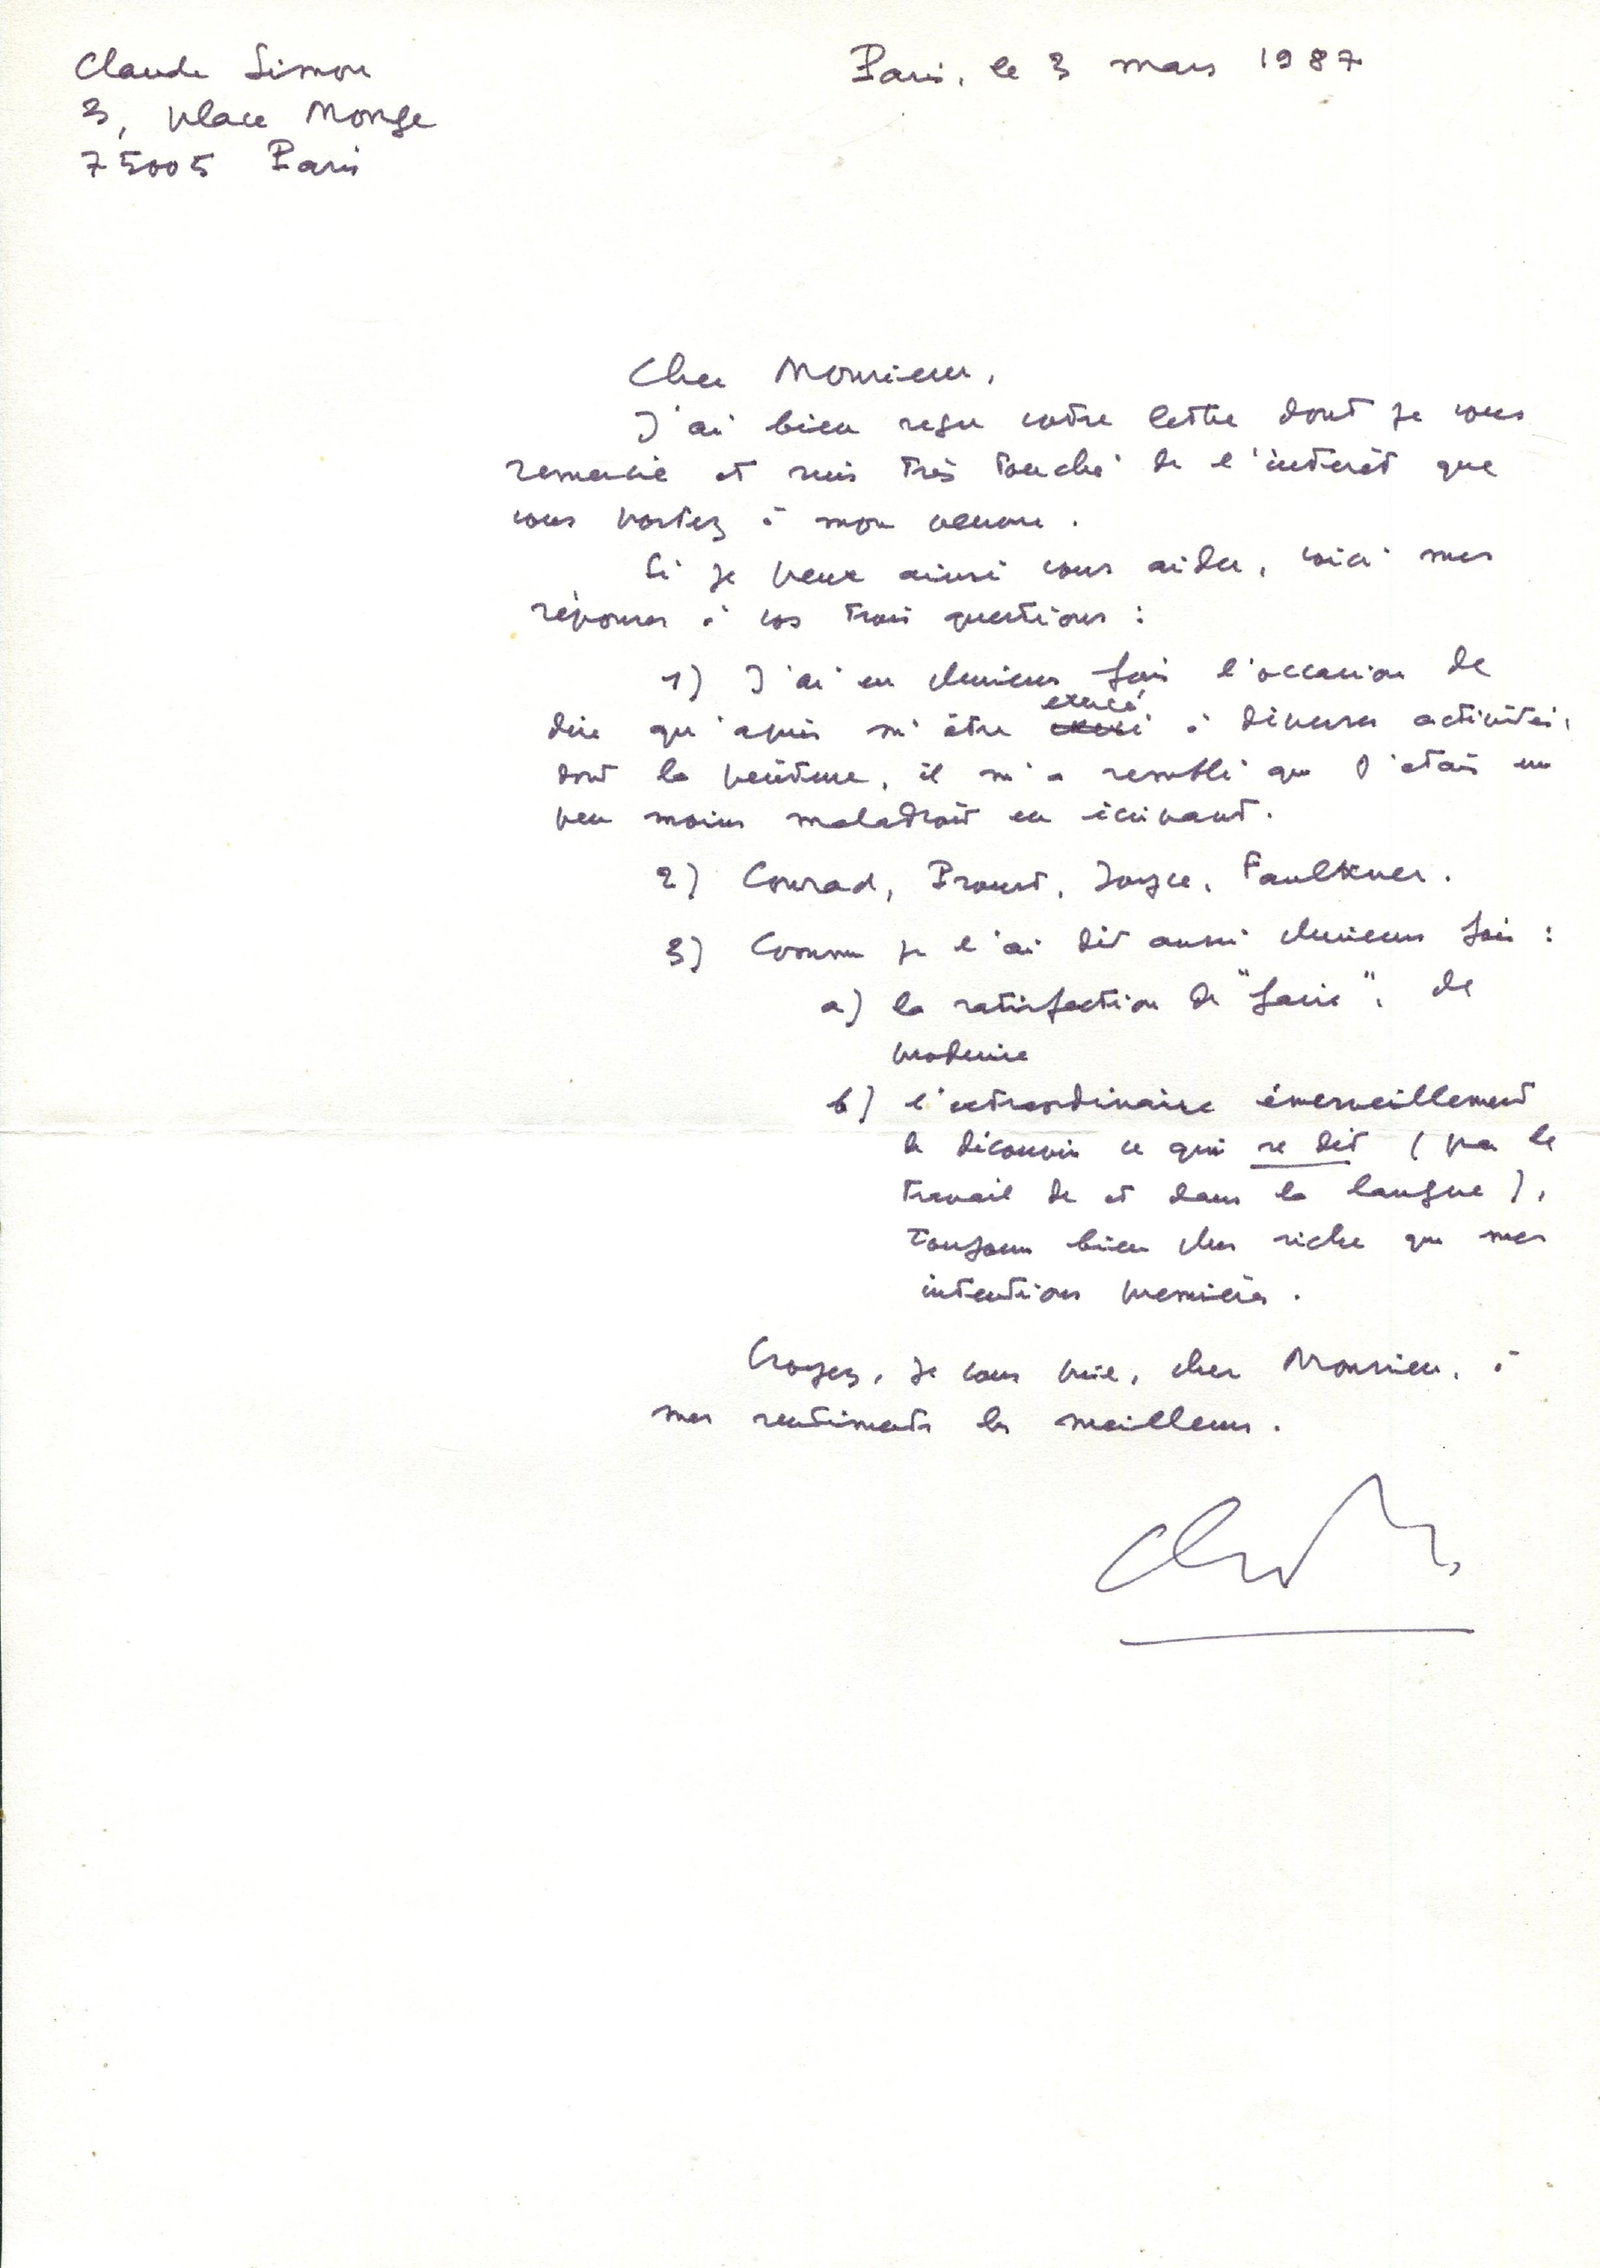 Claude Simon
3, place Monge
75005 Paris
Paris, le 3 mars 1987
Cher Monsieur,
J'ai bien reçu votre lettre dont je vous
remercie et suis très touché de l'intérêt que
vous portez à mon œuvre.
Si je peux ainsi vous aider, voici mes
réponses à vos trois questions :
1) J'ai eu plusieurs fois l'occasion de
dire qu'après m'être exercé à diverses activités,
dont la peinture, il m'a semblé que j'étais un
peu moins maladroit en écrivant.
2) Conrad, Proust, Joyce, Faulkner.
3) Comme je l'ai dit aussi plusieurs fois :
a) la satisfaction de "faire", de
produire
b) l'extraordinaire émerveillement
de découvrir ce qui se dit (par le
travail de et dans la langue),
toujours bien plus riche que mes
intentions premières.
Croyez, je vous prie, cher Monsieur, à
mes sentiments les meilleurs.